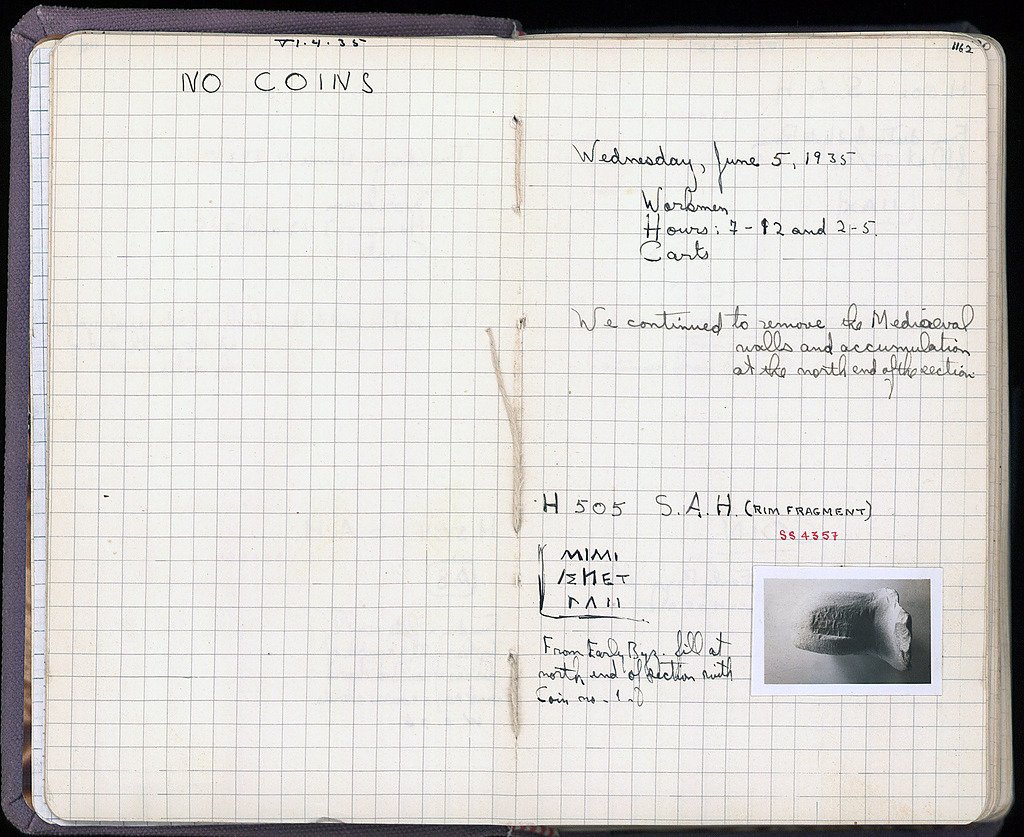 VI.4.35
NO COINS
1162
Wednesday, June 5, 1935
Workmen
Hours: 7-12 and 2-5.
Carts
We continued to remove the Mediaeval
walls and accumulation
at the north end of the section
H 505 S.A.H. (RIM FRAGMENT)
SS 4357
ΜΙΜΙ
ΕΤ
From Early Byz. fill at
north end of section with
Coin no.